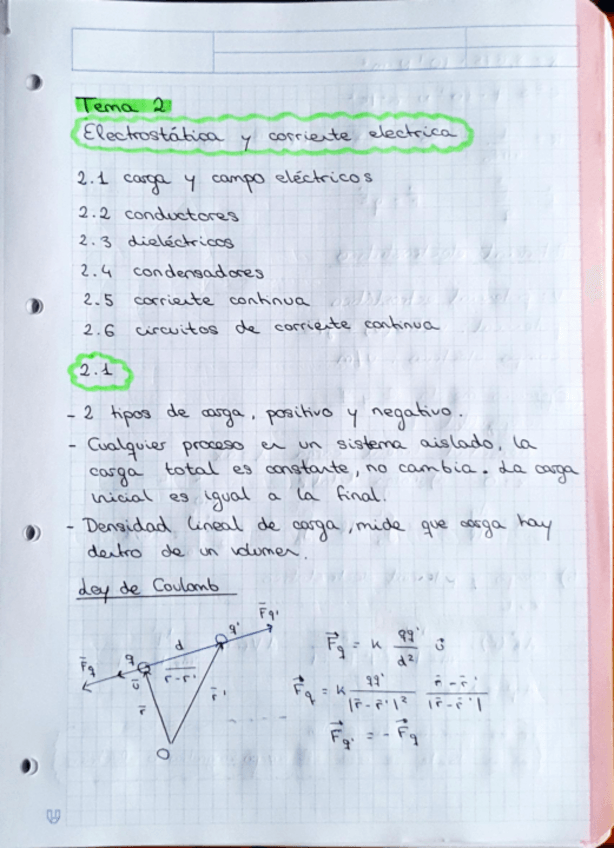 Tema 2
Electrostática y corriente electrica
2.1 carga y campo eléctricos
2.2 conductores
2.3 dieléctricos
2.4 condensadores
2.5 corriente continua
2.6 circuitos de corriente continua
2.1
- 2 tipos de carga, positivo y negativo.
- Cualquier proceso en un sistema aislado, la
carga total es constante, no cambia. La carga
inicial es igual a la final.
- Densidad lineal de carga, mide que carga hay
dentro de un volumen.
Ley de Coulomb
F̄q'
q'
d
q
F̄q
ū
r̄-r̄'
r̄
r̄'
O
F⃗q = k qq'/d² ū
F⃗q = k qq'/|r̄-r̄'|² r̄-r̄'/|r̄-r̄'|
F⃗q' = - F⃗q